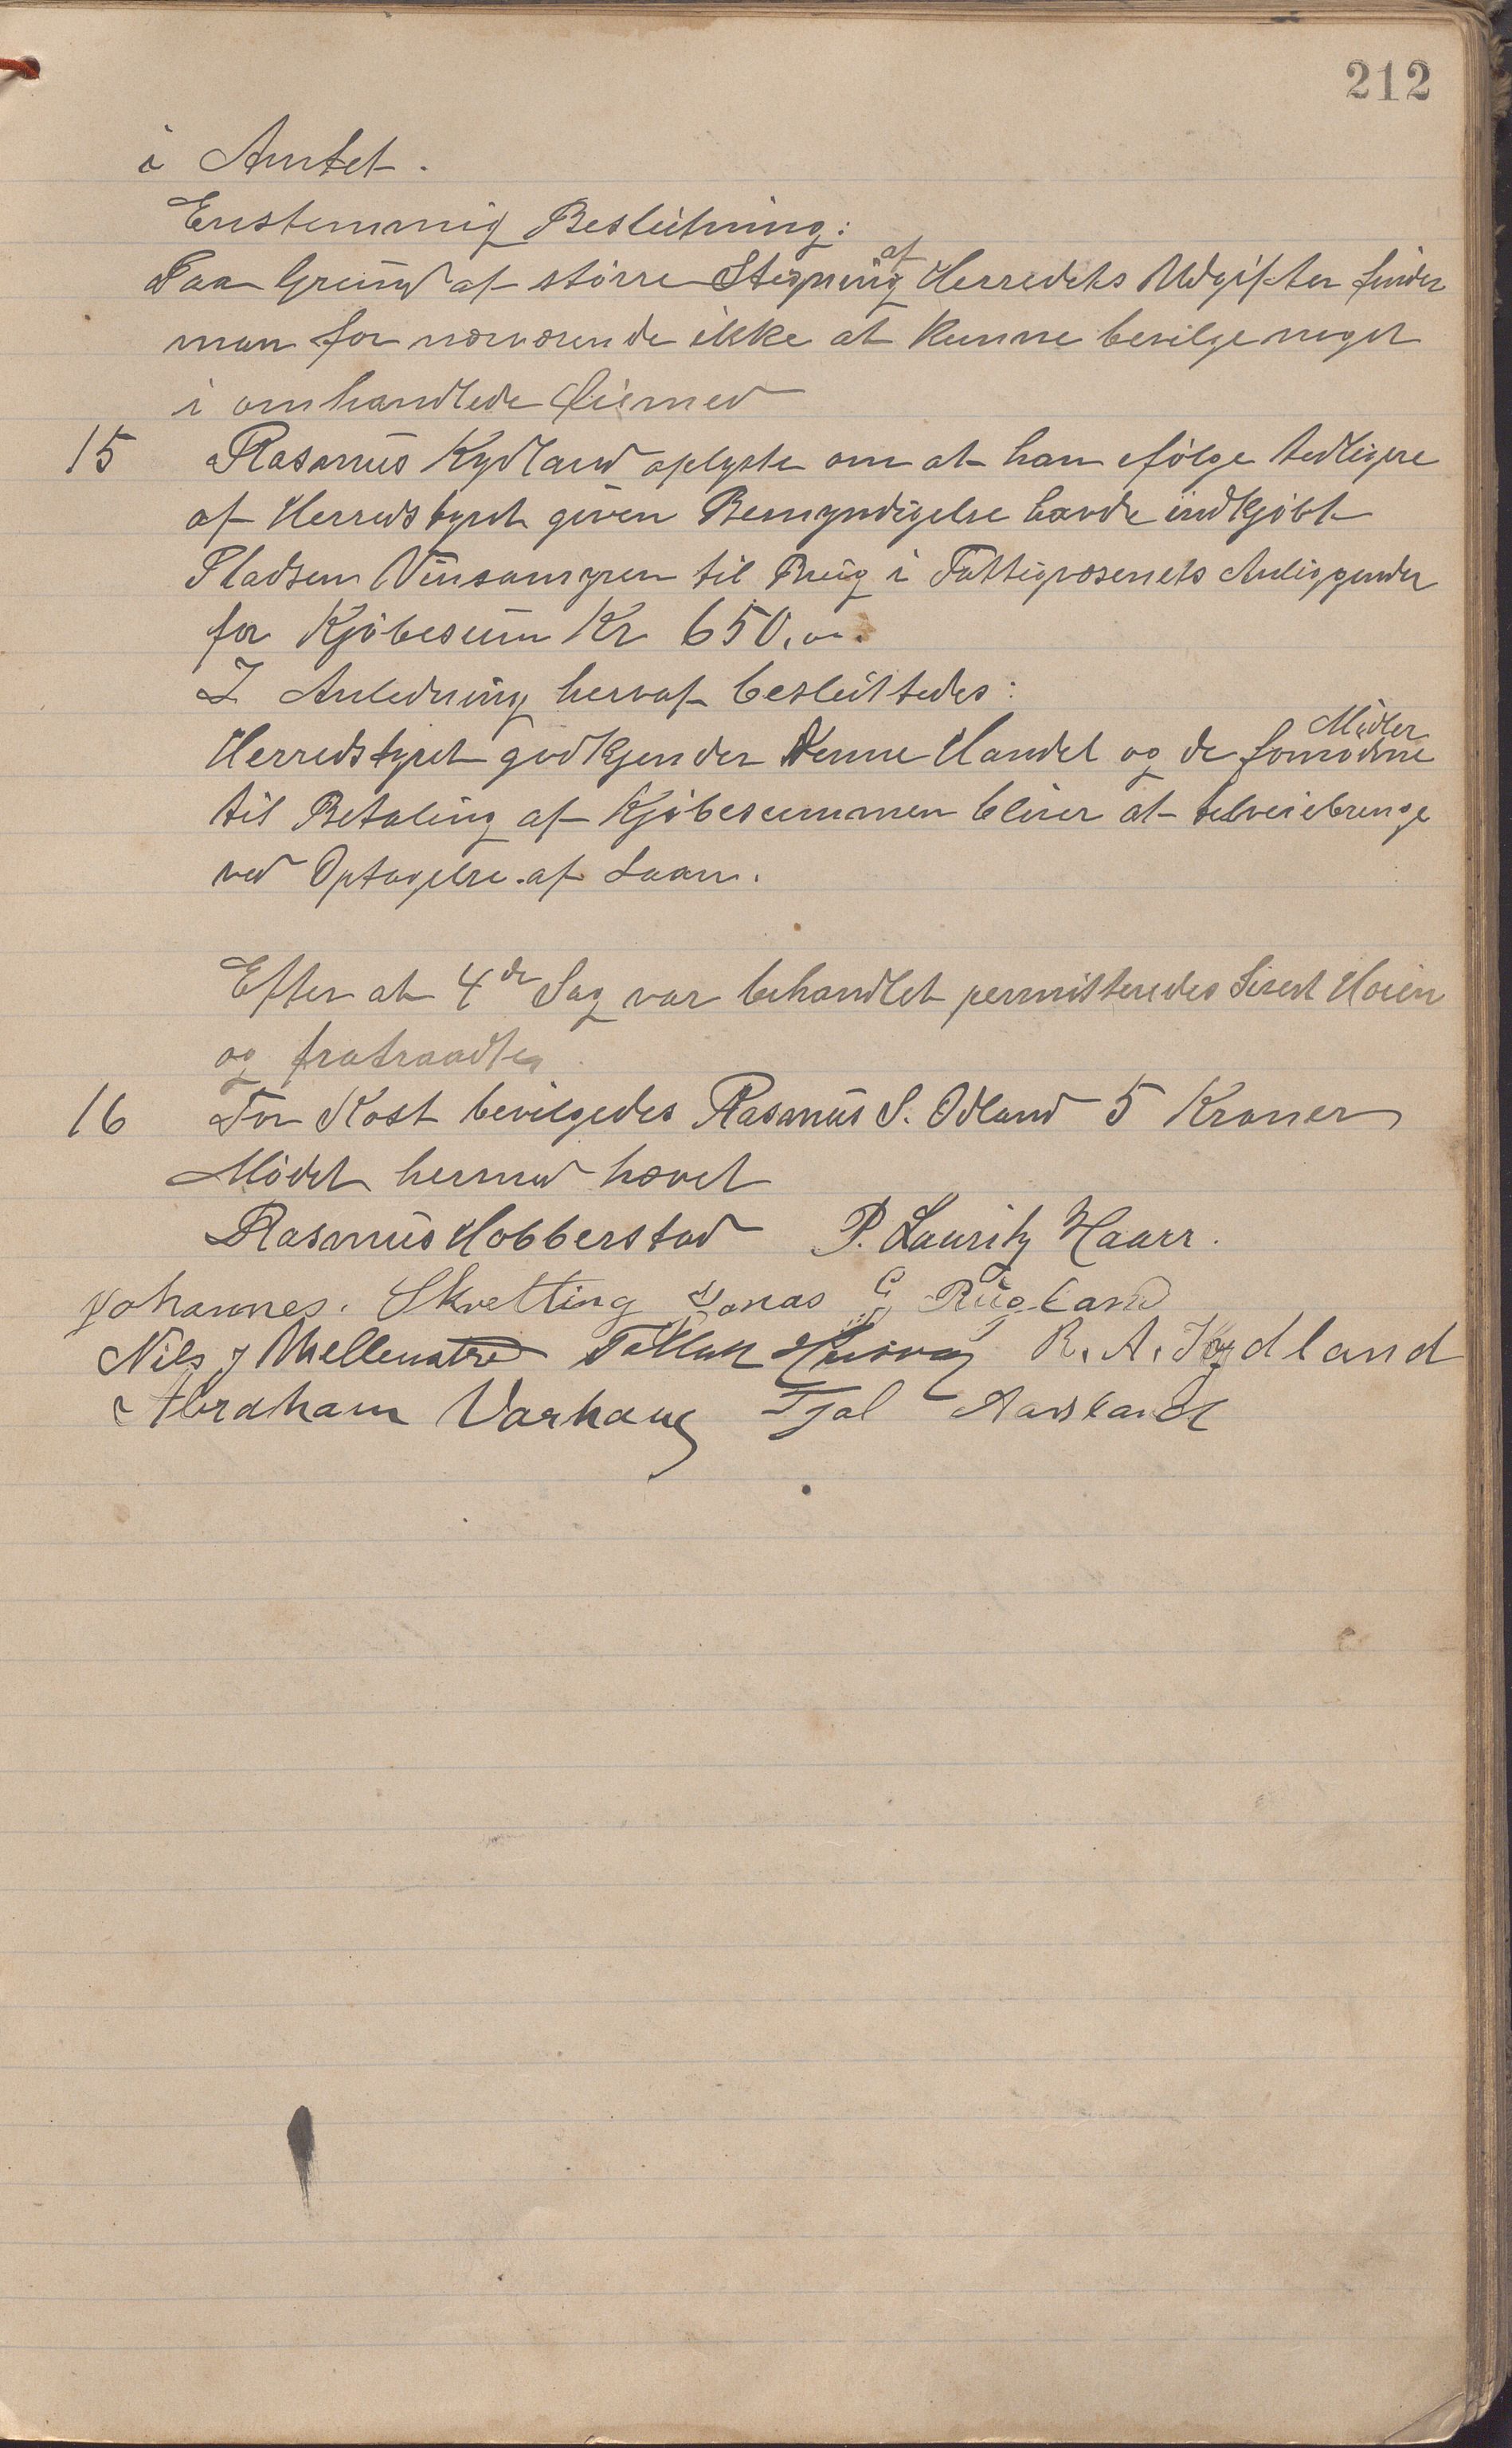 212
i Amtet.
Enstemmig Beslutning:
Paa Grund af større Stegning af Herredets Udgifter finder
man for nærværende ikke at kunne bevilge noget
i omhandlede Øiemed
15 Rasmus Kydland oplyste om at han efølge tedligere
af Herredstyret given Bemyndigelse havde indkjøbt
Pladsen til Brug i Fattigvæsenets Anliggender
for Kjøbesum Kr 650.00.
I Anledning heraf besluttedes:
Herredstyret godkjender denne Handel og de fornødne Midler
til Betaling af Kjøbesummen bliver at tilveiebringe
ved Optagelse af Laan.
Efter at 4de Sag var behandlet permitteredes Sivert Høien
og fratraadte
16 For Kost bevilgedes Rasmus S. Odland 5 Kroner
Mødet hermed hævet
Rasmus Hobberstad P. Lauritz Haarr.
Johannes. Skretting Jonas G Rugland
Nils J Mellemstrand Tollak R. A. Kydland
Abraham Varhaug Tjøl Aarsland